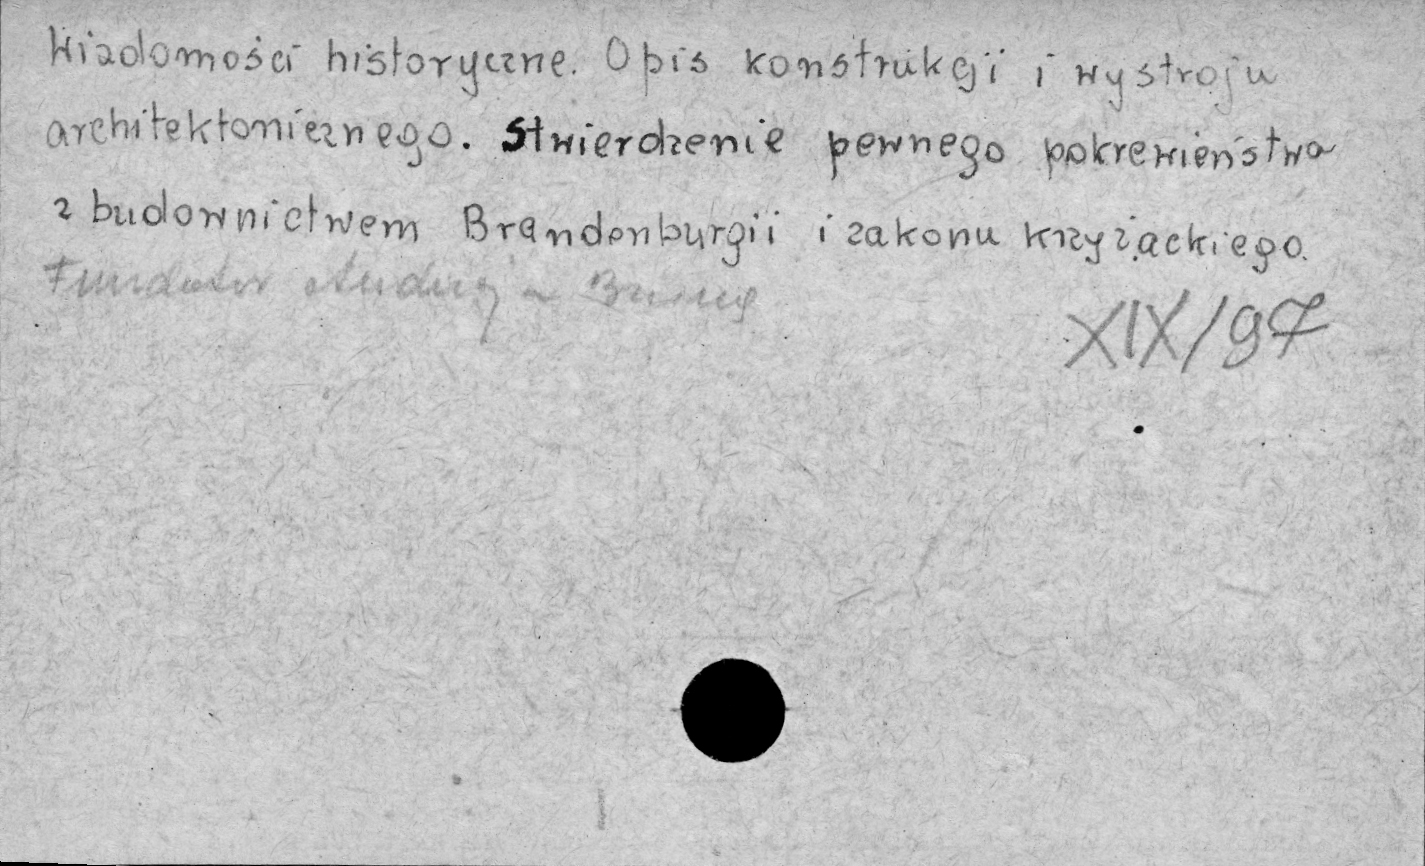 Wiadomości historyczne. Opis konstrukcji i wystroju
architektonicznego. Stwierdzenie pewnego pokrewieństwa
z budownictwem Brandenburgii i zakonu krzyżackiego.
Fundator
XIX/97